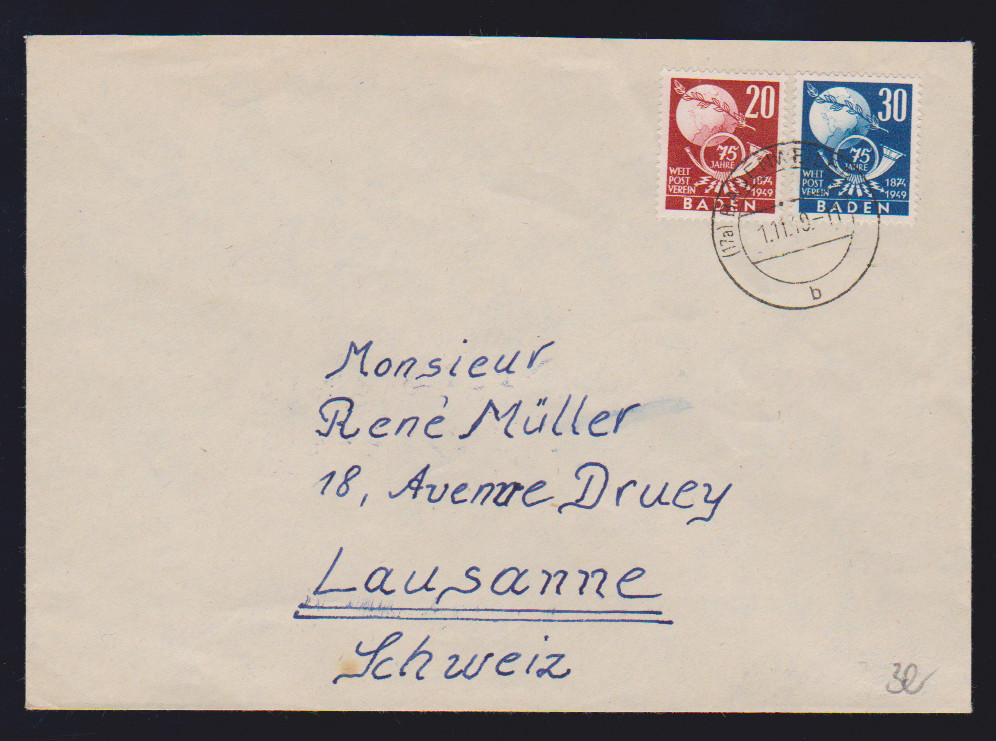 20
75
JAHRE
WELT
POST
VEREIN
1874
1949
BADEN
30
75
JAHRE
WELT
POST
VEREIN
1874
1949
BADEN
(17a)
1.11.49.-11
b
Monsieur
Renè Müller
18, Avenue Druey
Lausanne
Schweiz